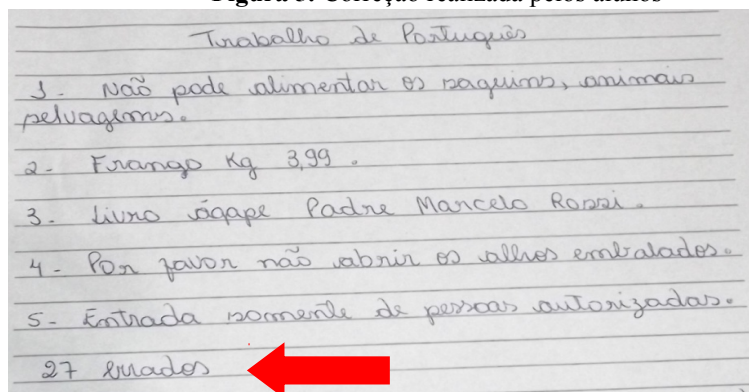 Figura Correção realizada pelos alunos
Trabalho de Português
1- Não pode alimentar os saguins, animais
selvagens.
2- Frango Kg 3,99.
3. Livro ágape Padre Marcelo Rossi.
4- Por favor não abrir os alhos embalados.
5- Entrada somente de pessoas autorizadas.
27 errados